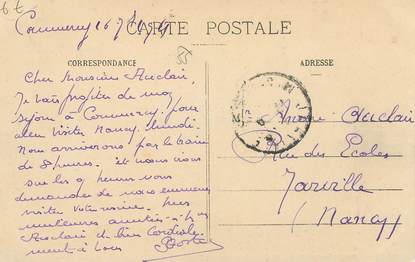 Commercy 16 7bre
CARTE POSTALE
CORRESPONDANCE
Cher Monsieur Auclair,
Je vais profiter de mon
séjour à Commercy pour
aller visiter Nancy lundi.
Nous arriverons par le train
de 8 heures. et nous
sur les 9 heures vous
demander de nous emmener
visiter votre usine. mes
meilleures amitiés à Mme
Auclair et bien cordiale
ment à vous
ADRESSE
André Auclair
Rue des Ecoles
Jarville
(Nancy)